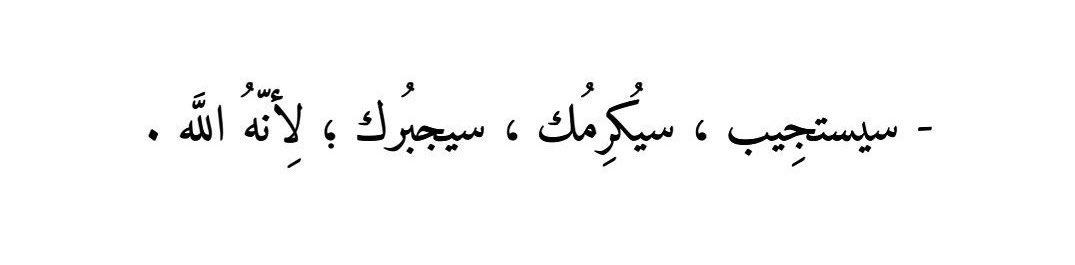 - سيستجِيب ، سيُكرِمُك ، سيجبُرك ؛ لِأنّهُ اللَّه .